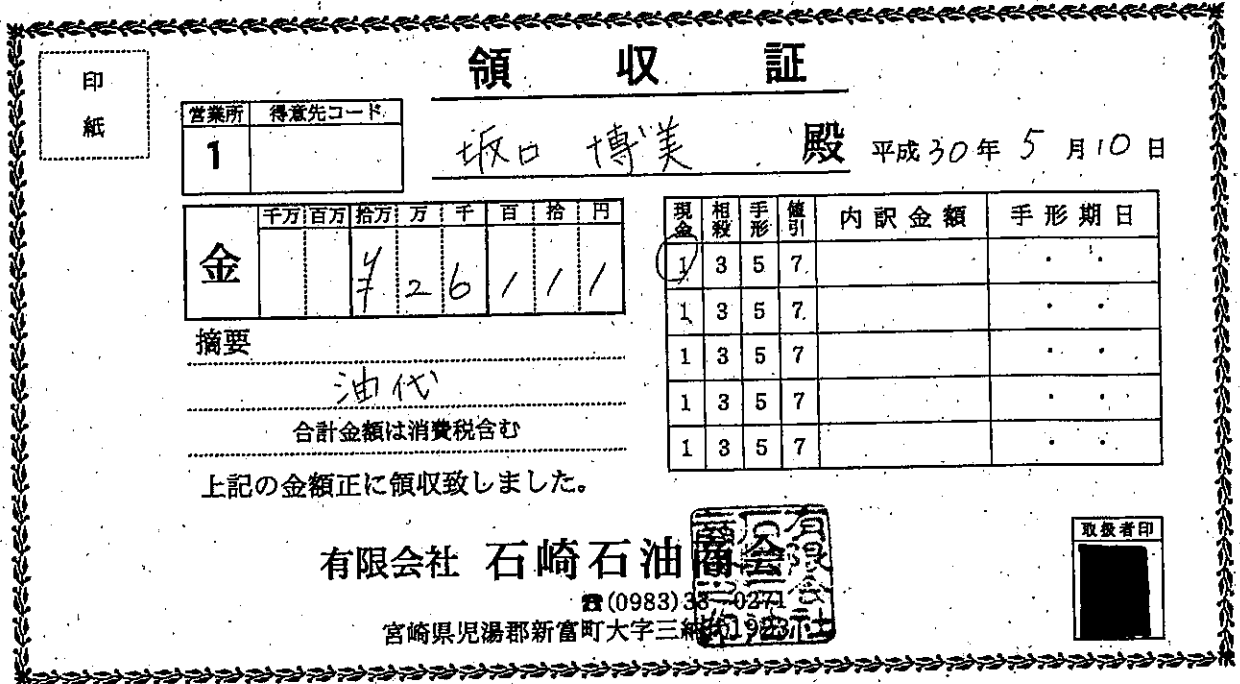 領収証
印紙
営業所 得意先コード
1
坂口 博美 殿 平成30年5月10日
千万 百万 拾万 万 千 百 拾 円
金 ¥26111
現金 相殺 手形 値引 内訳金額 手形期日
1 3 5 7 ・ ・
1 3 5 7 ・ ・
1 3 5 7 ・ ・
1 3 5 7 ・ ・
1 3 5 7 ・ ・
摘要
油代
合計金額は消費税含む
上記の金額正に領収致しました。
有限会社 石崎石油商会
☎(0983)33-0271
宮崎県児湯郡新富町大字三納代1983
取扱者印
有限会社